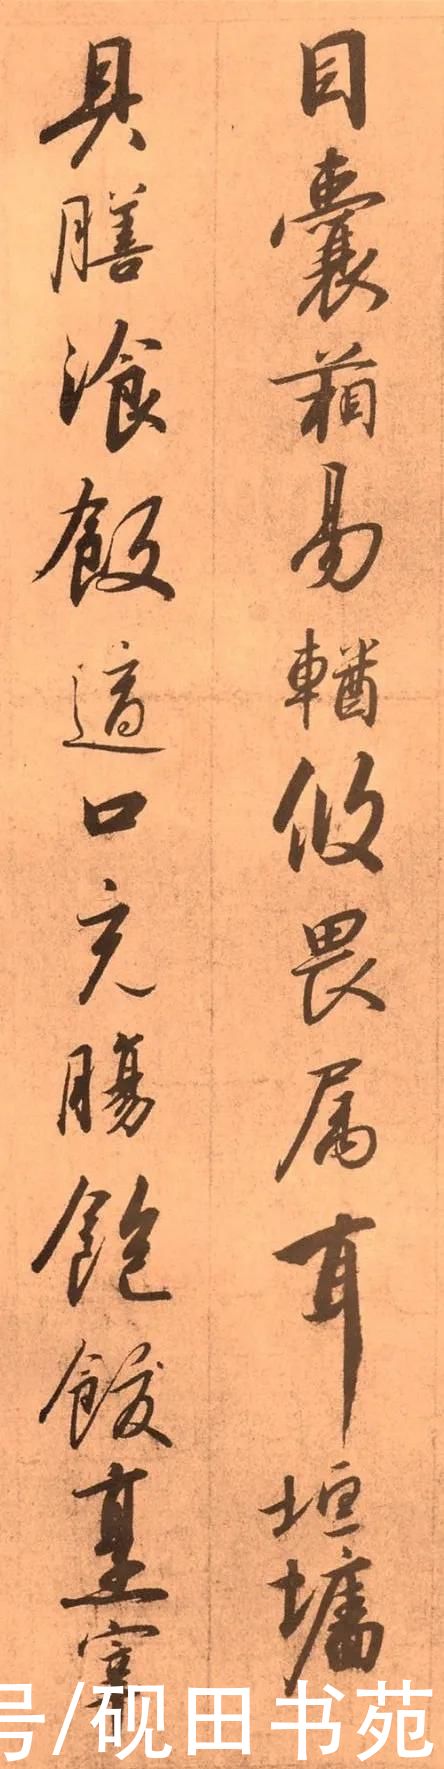 目囊箱易輶攸畏属耳垣墻
具膳飡飯適口充腸飽飫烹宰
号/砚田书苑